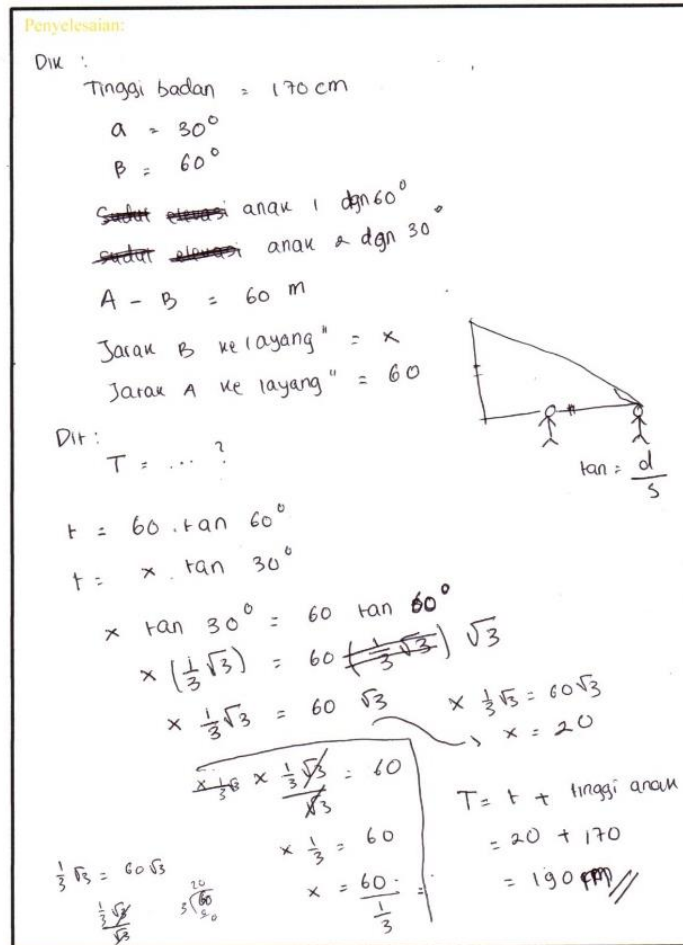 Penyelesaian:
Dik :
Tinggi badan = 170 cm
a = 30°
β = 60°
Sudut elevasi anak 1 dgn 60°
sudut elevasi anak 2 dgn 30°
A - B = 60 m
Jarak B ke layang" = x
Jarak A ke layang" = 60
Dit :
T = ... ?
tan = d/s
t = 60 . tan 60°
t = x . tan 30°
x tan 30° = 60 tan 60°
x (1/3 √3) = 60 (1/3 √3) √3
x 1/3 √3 = 60 √3
x 1/3 √3 = 60 √3
x = 20
x 1/3 √3 x 1/3 √3 / √3 = 60
x 1/3 = 60
x = 60 / 1/3 =
T = t + tinggi anak
= 20 + 170
= 190 cm //
1/3 √3 = 60 √3
1/3 √3 / √3
20
3 √60